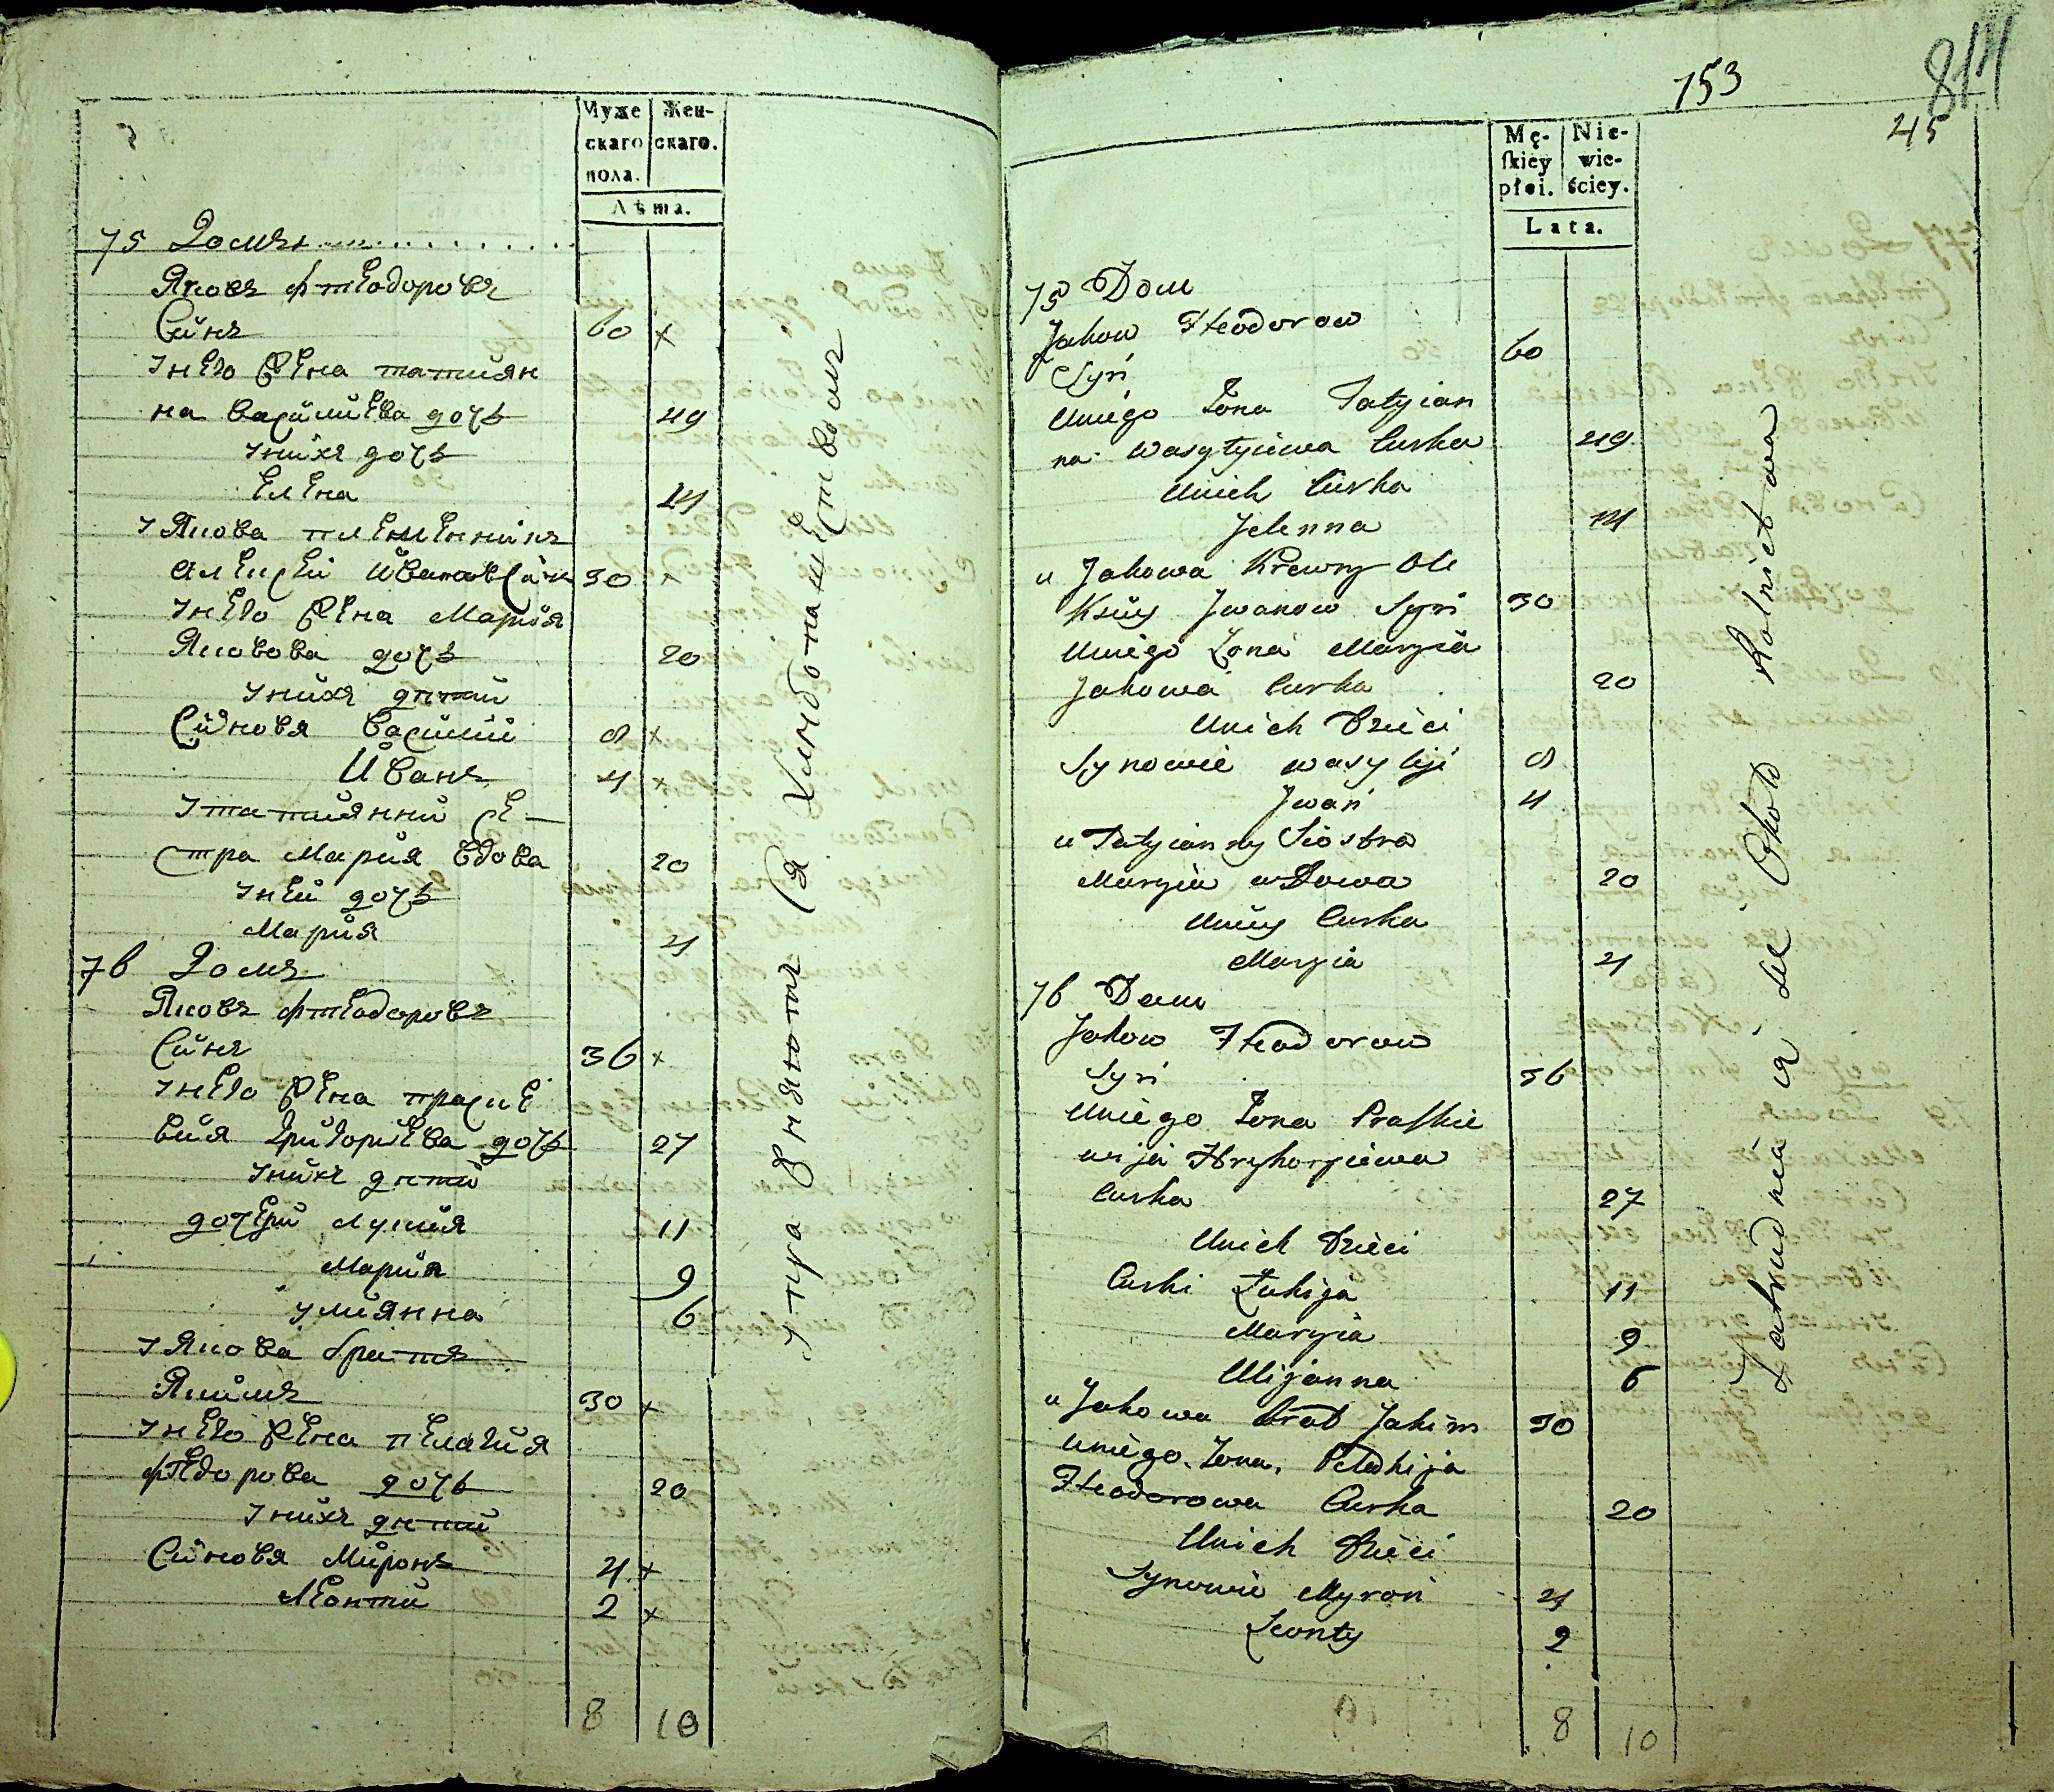 Муже
скаго
пола.
Жен-
скаго.
Лѣта.
75 Домъ
Яковъ Фтеодоровъ
Синъ 60 х
Унего Жена татиян
на василиева дочь 49
Унихъ дочь
Елена 14
У Якова племенникъ
Алексей Ивановъ Синъ 30 х
Унего Жена Мария
Яковова дочь 20
Унихъ дѣти
Синовя Василий 8 х
Иванъ 4 х
У татиянни се-
стра Мария Вдова 20
Уней дочь
Мария 4
76 Домъ
Яковъ Фтеодоровъ
Синъ 36 х
Унего Жена праске
вия Григориева дочь 27
Унихъ дѣти
дочери Лукия 11
Мария 9
Улиянна 6
У Якова братъ
Якимъ 30 х
Унего Жена пелагия
Фтедорова дочь 20
Унихъ дѣти
Синовя Миронъ 4 х
Леонтий 2 х
8 10
Упражняются Хлебопашеством
153
814
45
Mę-
skiey
płci.
Nie-
wie-
ściey.
Lata.
75 Dom
Jakow Fteodorow
Syn 60
Uniego Żona Tatyian
na Wasyłyiewa Curka 49
Unich Curka
Jelenna 14
u Jakowa Krewny Ole
Ksiey Jwanow Syn 30
Uniego Żona Maryia
Jakowa Curka 20
Unich Dzieci
Synowie wasyliji 8
Jwan 4
u Tatyianny Siostra
Maryia wdowa 20
Uniey Curka
Maryia 4
76 Dom
Jakow Fteodorow
Syn 36
Uniego Żona Praskie
wija Hryhoryiewa
Curka 27
Unich Dzieci
Curki Łukija 11
Maryia 9
Ulijanna 6
u Jakowa brat Jakim 30
Uniego Żona Pelahija
Fteodorowa Curka 20
Unich Dzieci
Synowie Myron 4
Leonty 2
8 10
Zatrudnia ią sie Około Rolnictwa